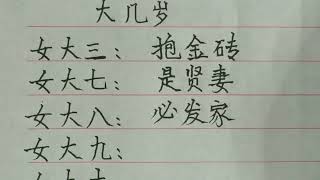 大几岁
女大三：抱金砖
女大七：是贤妻
女大八：必发家
女大九：